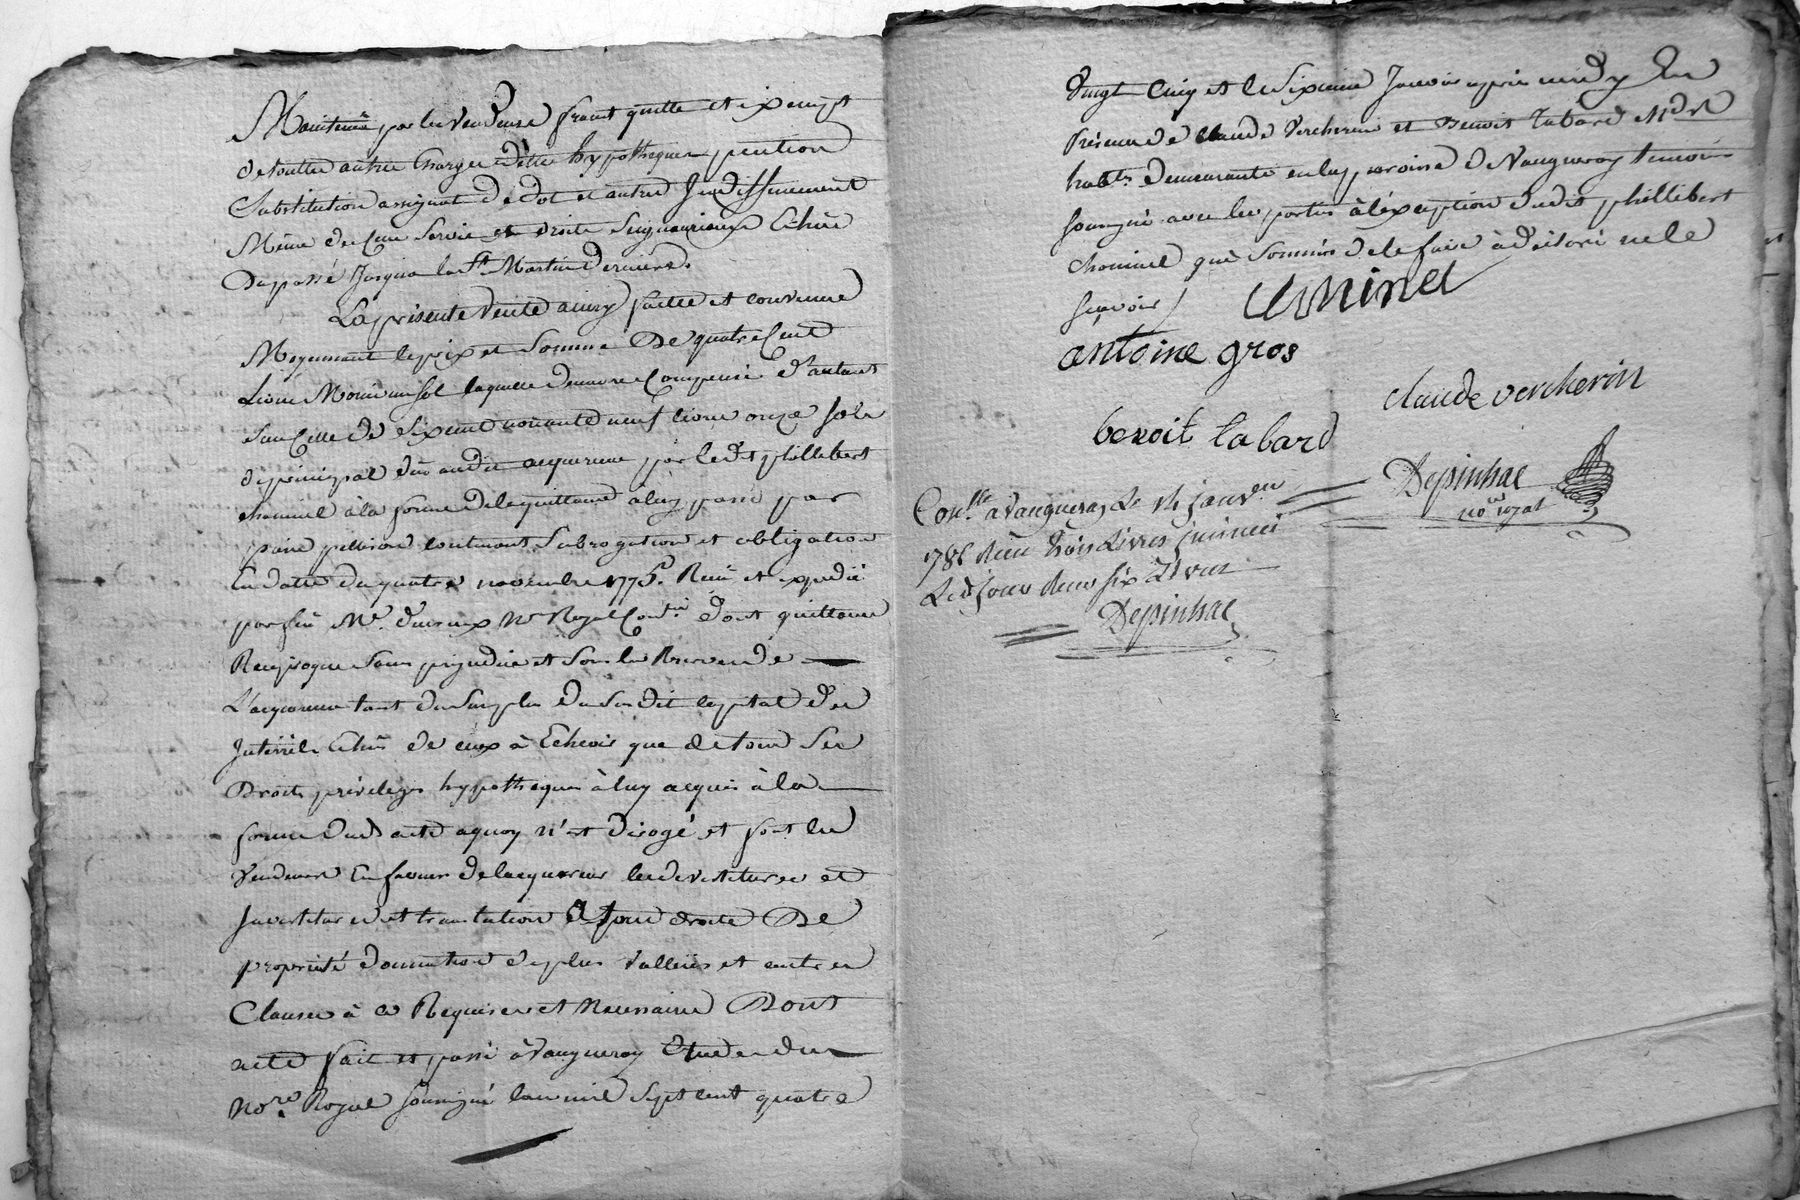 Maintenue par les vendeurs franct quitte et exempt
de touttes autres charges dettes hypotheques pention
Substitution assignat de dot et autres Jndiffinement
Même de Cens Servis et droits Seigneuriaux Echus
Du passé Jusqua la St Martin derniere.
La presente Vente ainsy faitte et convenue
Moyennant le prix et Somme De quatre Cent
Livres Moins un sol laquelle demeure Compensée d'autant
Sur Celle de Six cent nonante neuf livres onze sols
de principal dus audit acquereur par ledit phillibert
choninel à la forme de la quittance à luy passé par
contenant Subrogation et obligation
En datte du quatre novembre 1775. Reçu et expedié
par feu Me. Nre Royal dont quittance
Reciproque Sans prejudice et Sous la Reserve de
L'acquereur tant du Surplus du Susdit capital des
Interets Echus de ceux à Echeoir que de tous Ses
Droits privileges hypotheques à luy acquis à la
forme dud acte aquoy n'est dérogé et font les
Vendeurs En faveur de lacquereur les devestitures et
Jnvestitures et translation De tous droits De
propriété donnation de plus Vallües et autres
Clauses à ce Requises et Necessaires Dont
acte fait et passé à Vaugneray Etude du
Nore. Royal soussigné lan mil Sept cent quatre
Vingt Cinq et le Sixieme Janvier après midy En
Présence de Claude Vercherin et Benoit Labard
habts. demeurants en lad paroisse de Vaugneray temoins
soussignés avec les parties à l'exception dudit phillibert
choninel qui Sommés de le faire à déclaré ne le
sçavoir /
antoine gros
claude vercherin
benoit labard
Depinhac
nore royal
Conllé a Vaugneray Le 14 janver
1785 Reçu trois Livres
Led jour Reçu six Livres
Depinhac